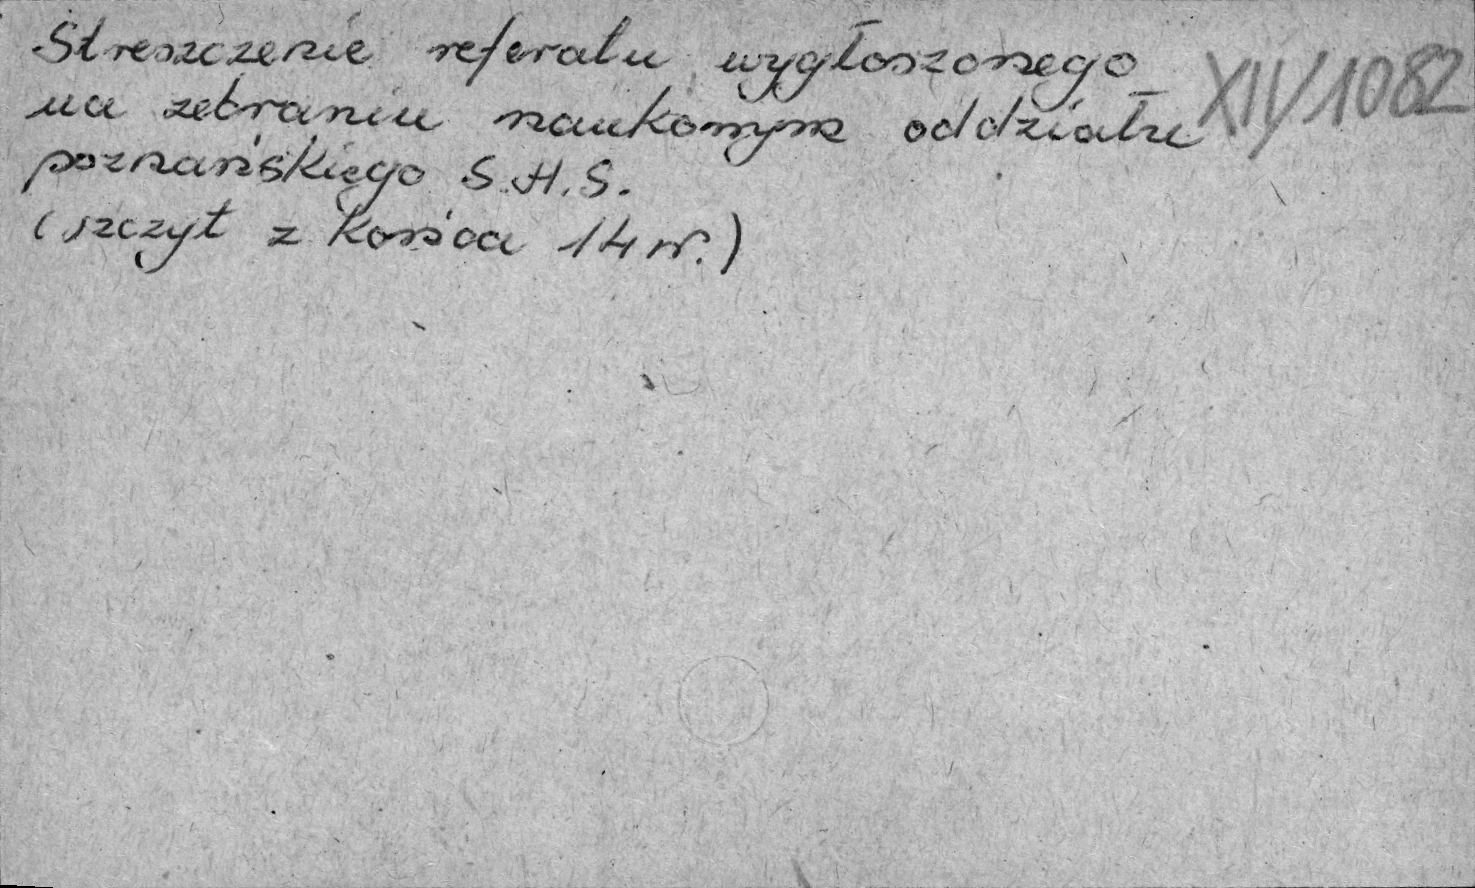 Streszczenie referatu wygłoszonego
na zebraniu naukowym oddziału XIV/1082
poznańskiego S.H.S.
(szczyt z końca 14 w.)